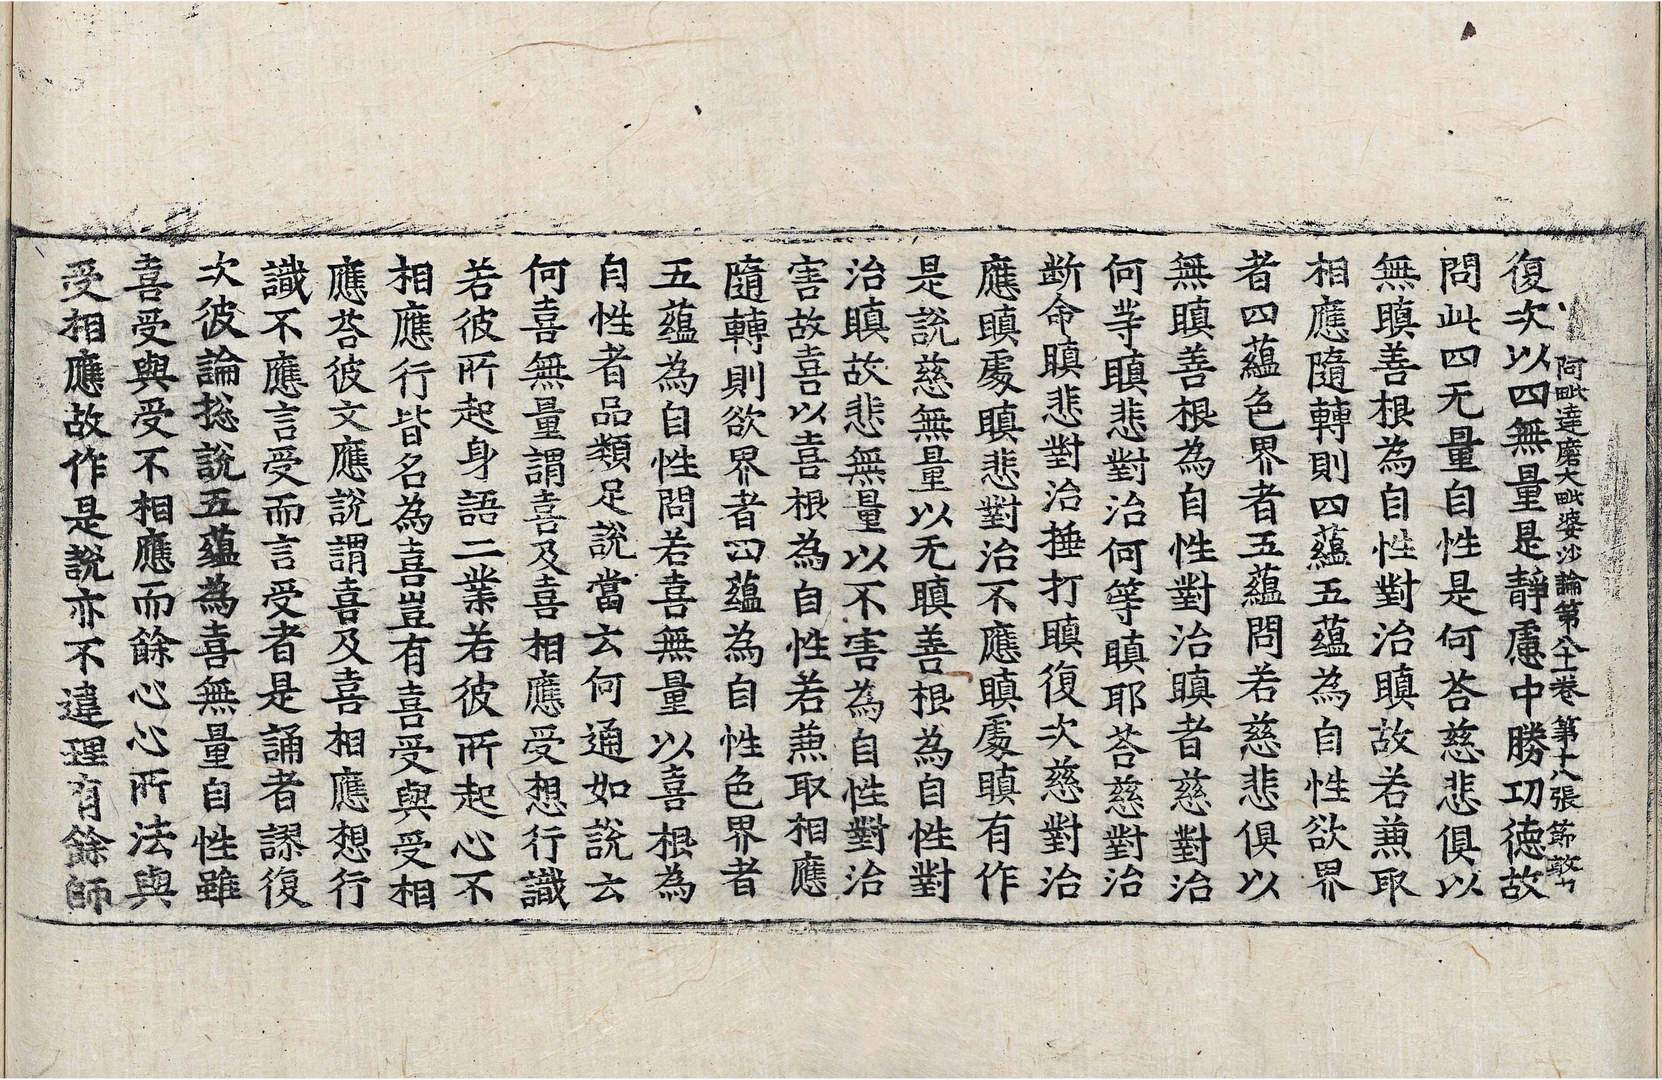 阿毗達磨大毗婆沙論第八十一卷 第十八張 節
復次以四無量是靜慮中勝功德故
問此四无量自性是何荅慈悲俱以
無瞋善根為自性對治瞋故若兼取
相應隨轉則四蘊五蘊為自性欲界
者四蘊色界者五蘊問若慈悲俱以
無瞋善根為自性對治瞋者慈對治
何等瞋悲對治何等瞋耶荅慈對治
斷命瞋悲對治捶打瞋復次慈對治
應瞋處瞋悲對治不應瞋處瞋有作
是說慈無量以无瞋善根為自性對
治瞋故悲無量以不害為自性對治
害故喜以喜根為自性若兼取相應
隨轉則欲界者四蘊為自性色界者
五蘊為自性問若喜無量以喜根為
自性者品類足說當云何通如說云
何喜無量謂喜及喜相應受想行識
若彼所起身語二業若彼所起心不
相應行皆名為喜豈有喜受與受相
應荅彼文應說謂喜及喜相應想行
識不應言受而言受者是誦者謬復
次彼論捴說五蘊為喜無量自性雖
喜受與受不相應而餘心心所法與
受相應故作是說亦不違理有餘師